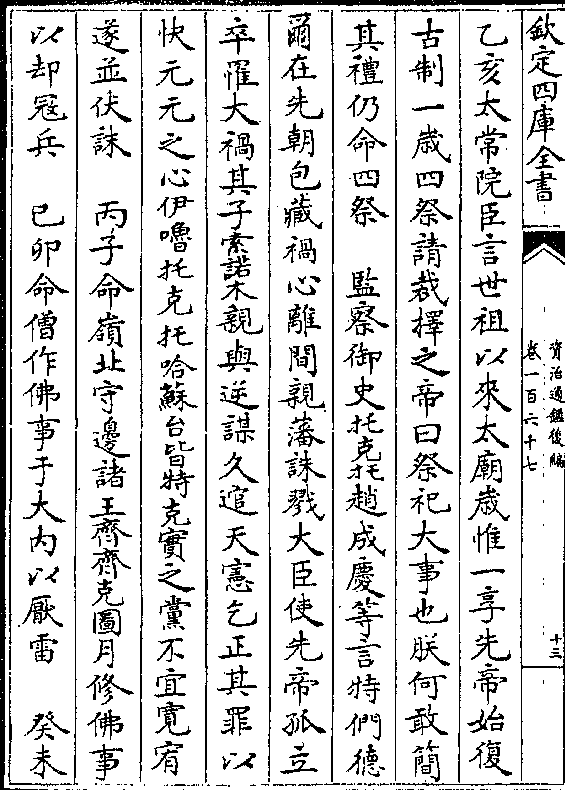 欽定四庫全書
資治通鑑後編
卷一百六十七
十三
乙亥太常院臣言世祖以來太廟歲惟一享先帝始復
古制一歲四祭請裁擇之帝曰祭祀大事也朕何敢簡
其禮仍命四祭　監察御史托克托趙成慶等言特們德
爾在先朝包藏禍心離間親藩誅戮大臣使先帝孤立
卒罹大禍其子索諾木親與逆謀久逭天憲乞正其罪以
快元元之心伊嚕托克托哈蘇台皆特克實之黨不宜寬宥
遂並伏誅　丙子命嶺北守邊諸王齊齊克圖月修佛事
以却冦兵　己卯命僧作佛事于大内以厭雷　癸未